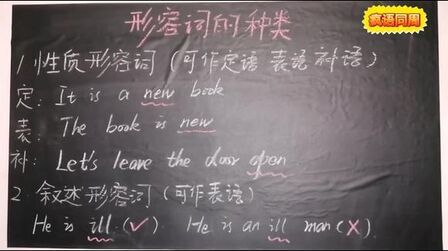 疯语同周
形容词的种类
1 性质形容词(可作定语 表语 补语)
定: It is a new book
表: The book is new
补: Let's leave the door open
2. 叙述形容词(可作表语)
He is ill.(✓) He is an ill man(×).